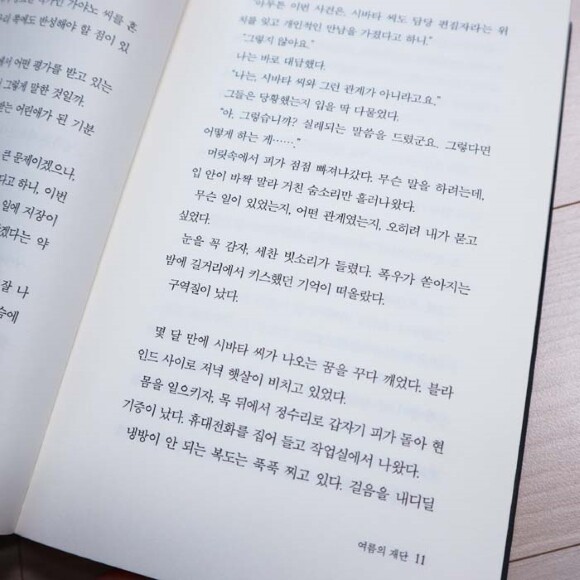 가인 가야노 씨를 혼
쪽에도 반성해야 할 점이 있
에서 어떤 평가를 받고 있는
그렇게 말한 것일까.
받는 어린애가 된 기분
큰 문제이겠으나,
다고 하니, 이번
일에 지장이
겠다는 약
잘 나
슴에
"아무튼 이번 사건은, 시바타 씨도 담당 편집자라는 위
치를 잊고 개인적인 만남을 가졌다고 하니."
"그렇지 않아요."
나는 바로 대답했다.
"나는, 시바타 씨와 그런 관계가 아니라고요."
그들은 당황했는지 입을 딱 다물었다.
"아, 그렇습니까? 실례되는 말씀을 드렸군요. 그렇다면
어떻게 하는 게……."
머릿속에서 피가 점점 빠져나갔다. 무슨 말을 하려는데,
입 안이 바짝 말라 거친 숨소리만 흘러나왔다.
무슨 일이 있었는지, 어떤 관계였는지, 오히려 내가 묻고
싶었다.
눈을 꼭 감자, 세찬 빗소리가 들렸다. 폭우가 쏟아지는
밤에 길거리에서 키스했던 기억이 떠올랐다.
구역질이 났다.
몇 달 만에 시바타 씨가 나오는 꿈을 꾸다 깨었다. 블라
인드 사이로 저녁 햇살이 비치고 있었다.
몸을 일으키자, 목 뒤에서 정수리로 갑자기 피가 돌아 현
기증이 났다. 휴대전화를 집어 들고 작업실에서 나왔다.
냉방이 안 되는 복도는 푹푹 찌고 있다. 걸음을 내디딜
여름의 재단 11